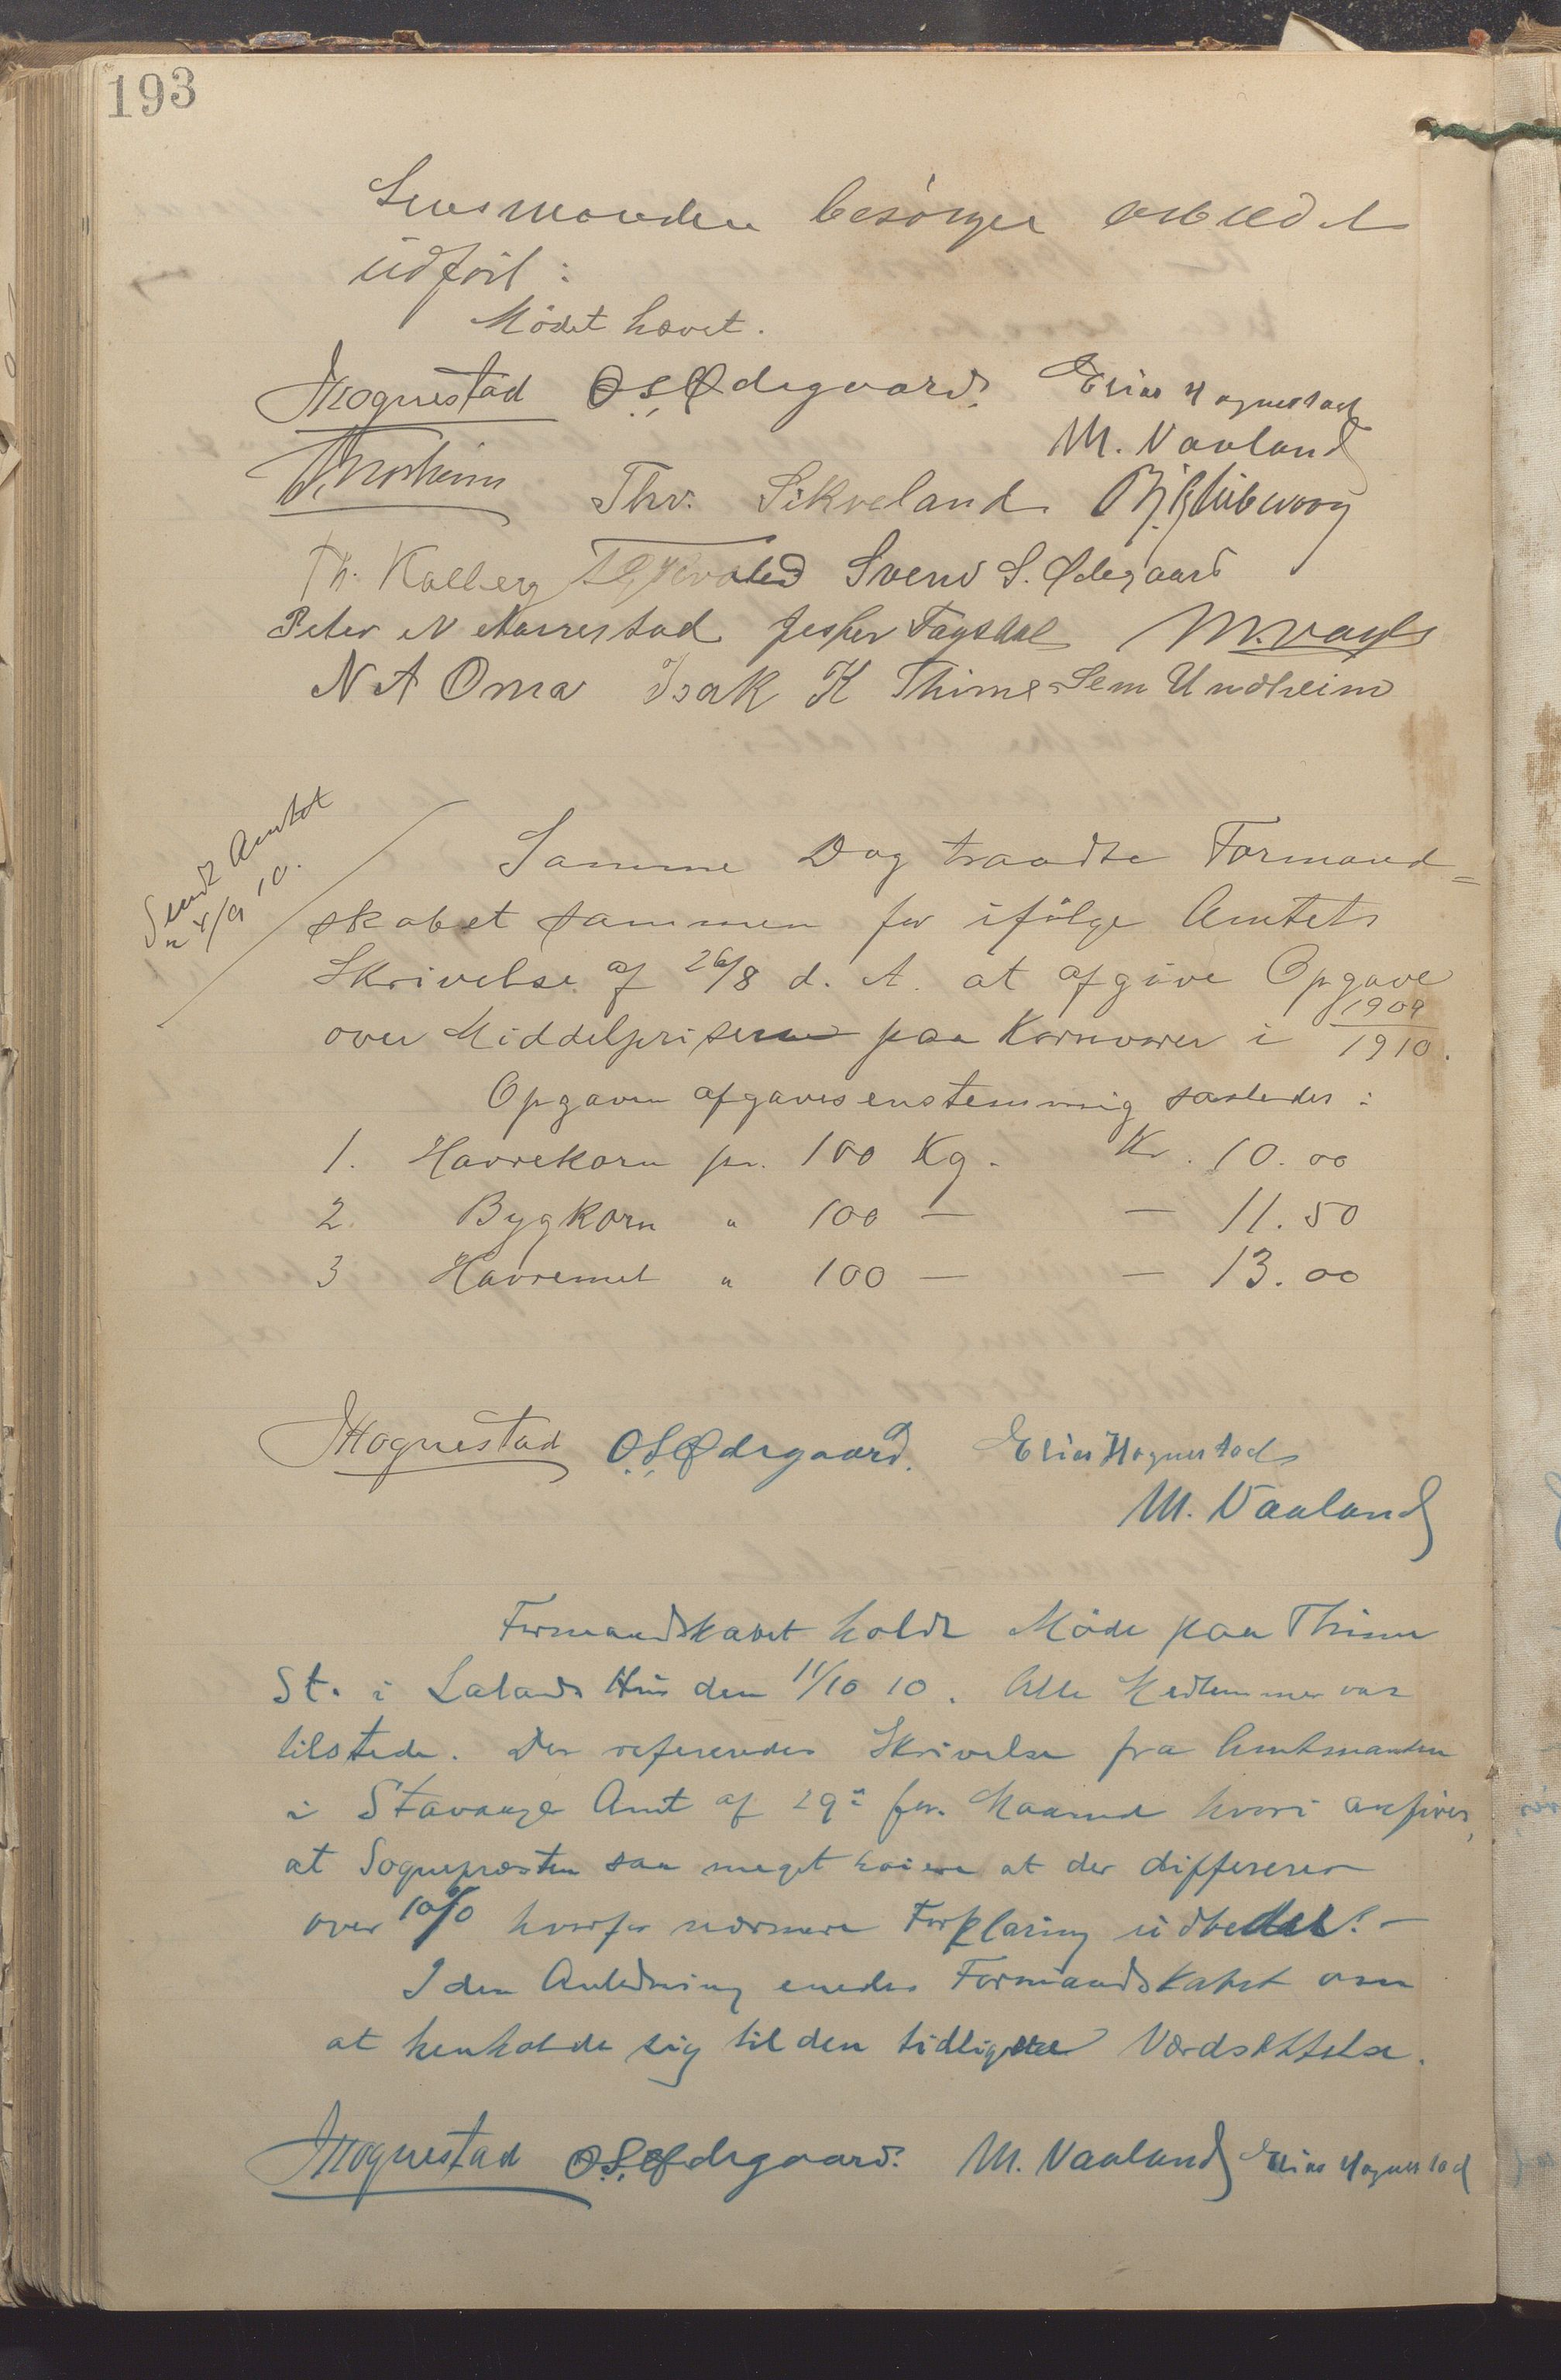 193
Lensmanden besörger arbeidet
udfört :
Mödet hævet.
Hognestad O. S. Ødegaard. Elias Hognestad
M. Vaaland
Norheim Thv. Sikveland
Th. Kalberg Svend S. Ødegaard
Peter N Norrestad Jesper Fagsdal M. Vagle
N A Oma Isak K Thime Sem Undheim
Sendt Amtet
10.
Samme Dag traadte Formand=
skabet sammen for ifölge Amtets
Skrivelse af 26/8 d. A. at afgive Opgave
over Middelpriserne paa Kornvarer i 1909/1910.
Opgaven afgaves enstemmig saaledes :
1. Havrekorn pr. 100 Kg. Kr. 10.00
2. Bygkorn " 100 — — 11.50
3 Havremel " 100 — — 13.00
Hognestad O. S. Ødegaard. Elias Hognestad
M. Vaaland
Formandskabet holdt Möde paa Thime
St. i Lalands Hus den 11/10 10. Alle Medlemmer var
tilstede. Der refereredes Skrivelse fra Amtmanden
i Stavanger Amt af 29de for. Maaned hvori anföres,
at Sognepræsten saa meget höiere at der differerer
over 10% hvorfor nærmere Forklaring udbedes. —
I den Anledning enedes Formandskabet om
at henholde sig til den tidligere Værdsættelse.
Hognestad O. S. Ødegaard. M. Vaaland Elias Hognestad